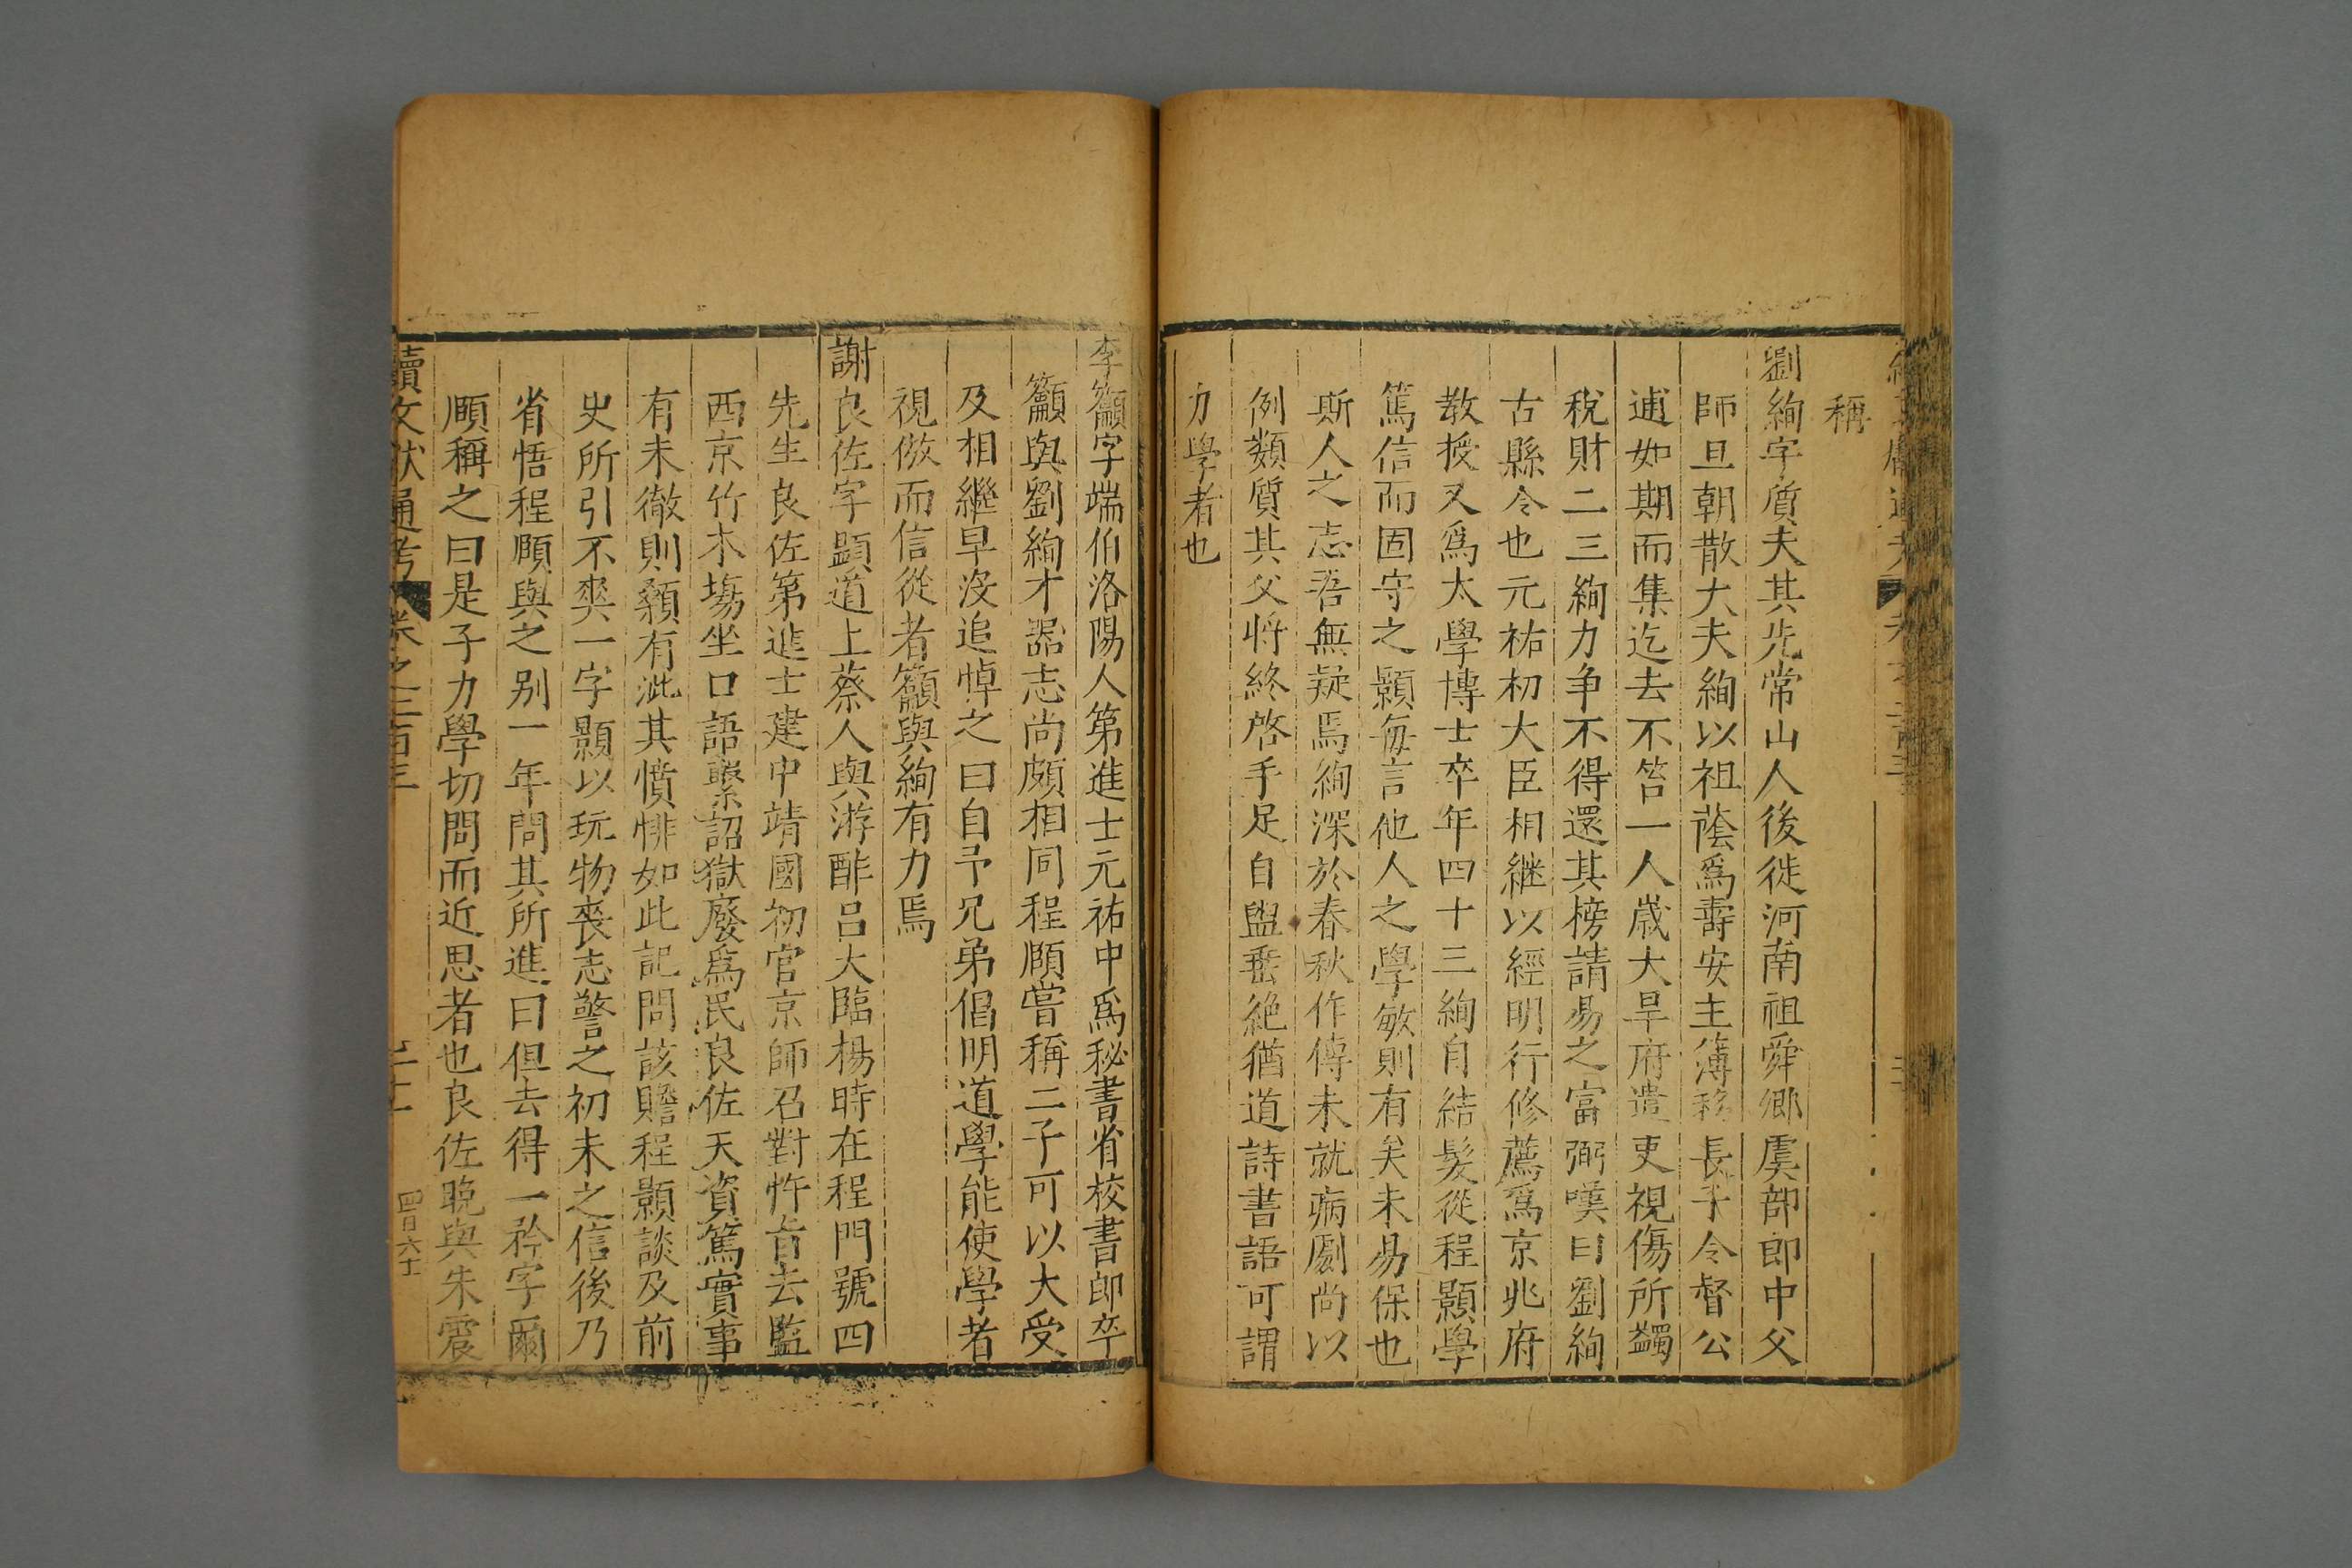 稱
劉絢字質夫其先常山人後徙河南祖舜卿虞部郎中父
師旦朝散大夫絢以祖蔭爲壽安主簿移長子令督公
逋如期而集迄去不笞一人歲大旱府遣吏視傷所蠲
稅財二三絢力争不得還其榜請易之富弼嘆曰劉絢
古縣令也元祐初大臣相繼以經明行修薦爲京兆府
教授又爲太學博士卒年四十三絢自結髮從程顥學
篤信而固守之顥每言他人之學敏則有矣未易保也
斯人之志吾無疑焉絢深於春秋作傳未就病劇尚以
例類質其父將終啓手足自盥垂絶猶道詩書語可謂
力學者也
李籲字端伯洛陽人第進士元祐中爲秘書省校書郎卒
籲與劉絢才器志尚頗相同程頤嘗稱二子可以大受
及相繼早没追悼之曰自予兄弟倡明道學能使學者
視倣而信從者籲與絢有力焉
謝良佐字顯道上蔡人與游酢呂大臨楊時在程門號四
先生良佐第進士建中靖國初官京師召對忤旨去監
西京竹木塲坐口語繫詔獄廢爲民良佐天資篤實事
有未徹則顙有泚其憤悱如此記問該贍程顥談及前
史所引不爽一字顥以玩物丧志警之初未之信後乃
省悟程頤與之别一年問其所進曰但去得一矜字爾
頤稱之曰是子力學切問而近思者也良佐晚與朱震
續文獻通考 卷之二百三